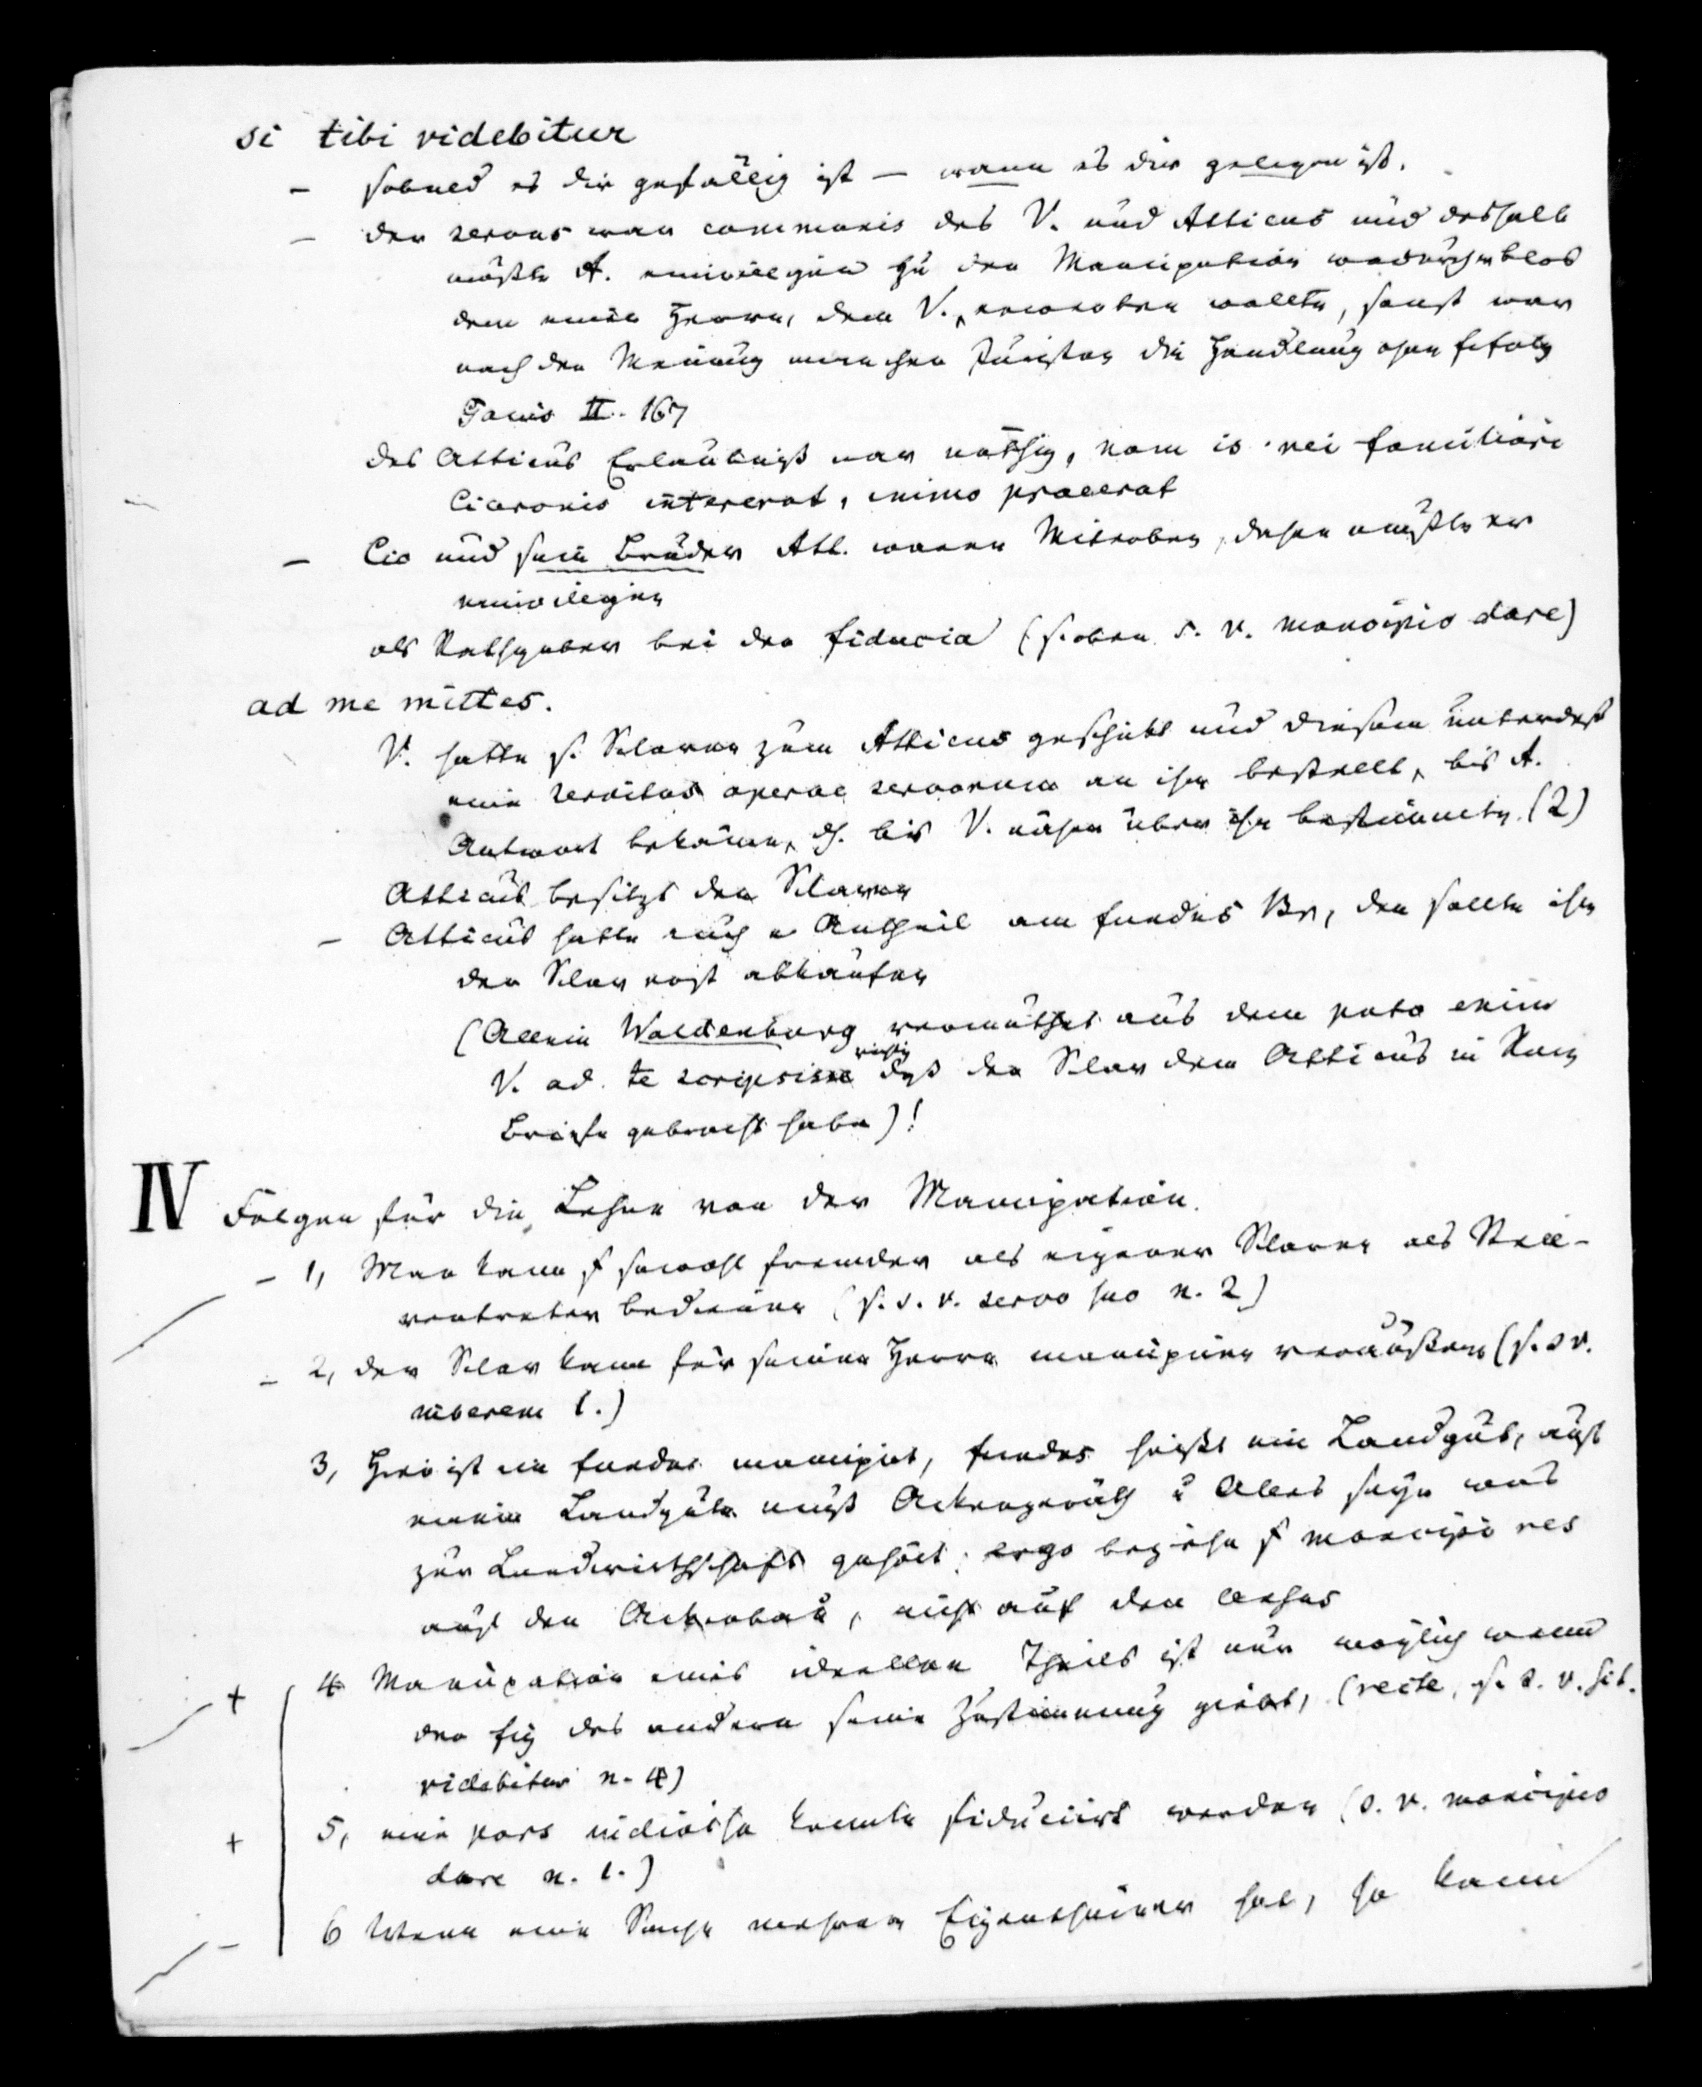 si tibi videbitur
– sobald es dir gefällig ist – wann es dir gelegen ist.
– der servus war communis des V. und Atticus und deßhalb
mußte A. einwilligen zu der Mancipation wodurch er blos
dem einen Herrn, dem V. erwerben wollte, sonst war
nach der Meinung mancher Juristen die Handlung ohne Erfolg
Gaius II. 167
des Atticus Erlaubniß war nöthig, nam is rei familiari
Ciceronis intererat, immo praeerat
– Cic und sein Bruder Att. waren Miterben, daher mußte er
einwilligen
als Rathgeber bei der fiducia (s. oben s. v. mancipio dare)
ad me mittes.
V. hatte s. Sclaven zum Atticus geschickt und diesem unterdeß
eine servitus operae servorum an ihm bestellt, bis A.
Antwort bekäme, d. h. bis V. näher über ihn bestimmte. (2)
Atticus besitzt den Sclaven
– Atticus hatte auch e Antheil am fundus Br, den sollte ihm
der Sclav erst abkaufen
(Allein Waldenburg vermuthet aus dem puto enim
V. ad te scripsisse richtig daß der Sclav dem Atticus in Rom
Briefe gebracht habe)!
IV Folgen für die Lehre von der Mancipation.
– 1, Man kann s sowohl fremder als eigener Sclaven als Stell-
vertreter bedienen (s. s. v. servo suo n. 2)
– 2, der Sclav kann für seinen Herrn mancipiren veräußern (s. s v.
1.)
3, Hier ist ein fundus mancipirt, fundus heißt ein Landgut, auf
einem Landgute muß Ackergeräth u Alles seyn was
zur Landwirthschaft gehört; ergo beziehe s mancipi res
auf den Ackerbau, nicht auf den
+ 4 Mancipation eines ideellen Theils ist nur möglich wenn
der Eig des andern seine Zustimmung giebt, (recte, s. s. v. si t.
videbitur n. 4)
+ 5, eine pars indivisa konnte fiducirt werden (s. v. mancipio
dare n. 1.)
– 6 Wenn eine Sache mehrere Eigenthümer hat, so kann